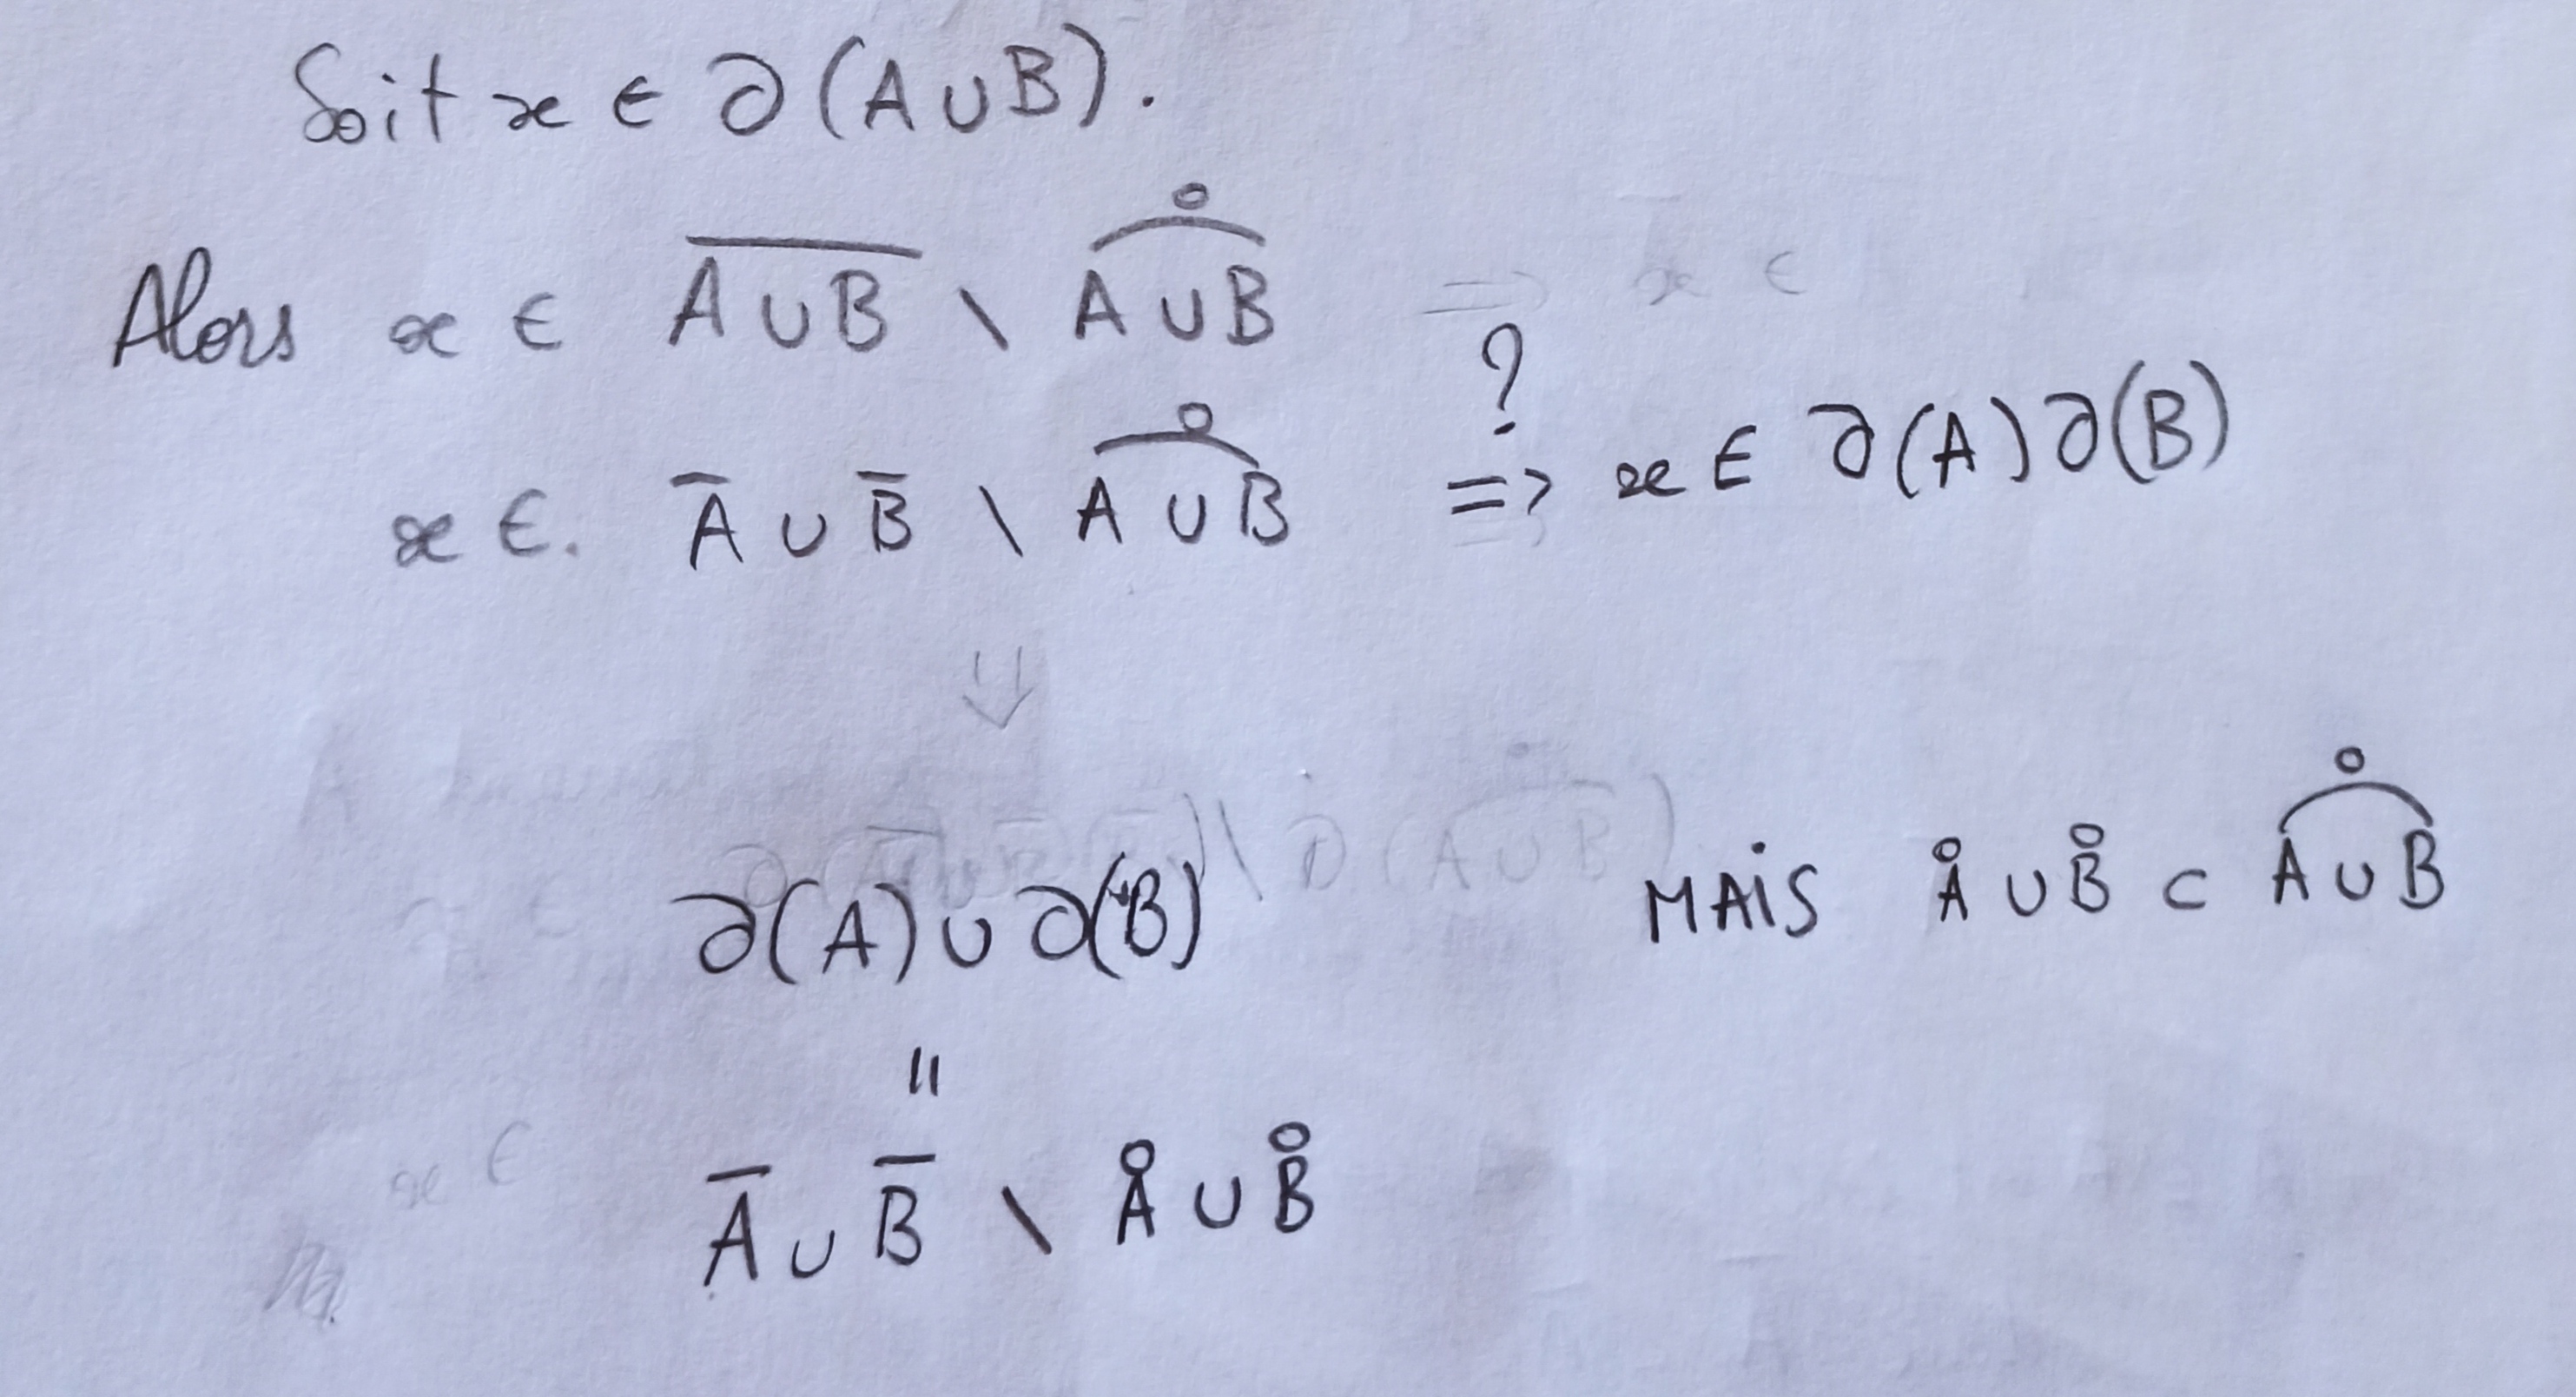 Soit x ∈ ∂(A∪B).
Alors x ∈ \overline{A∪B} \ \overset{∘}{\overgroup{A∪B}} ⇒ x ∈
x ∈. Ā ∪ B̄ \ \overset{∘}{\overgroup{A∪B}} ?⇒ x ∈ ∂(A)∂(B)
⇓
∂(A)∪∂(B) MAIS Å ∪ B̊ ⊂ \overset{∘}{\overgroup{A∪B}}
=
x ∈ Ā ∪ B̄ \ Å ∪ B̊